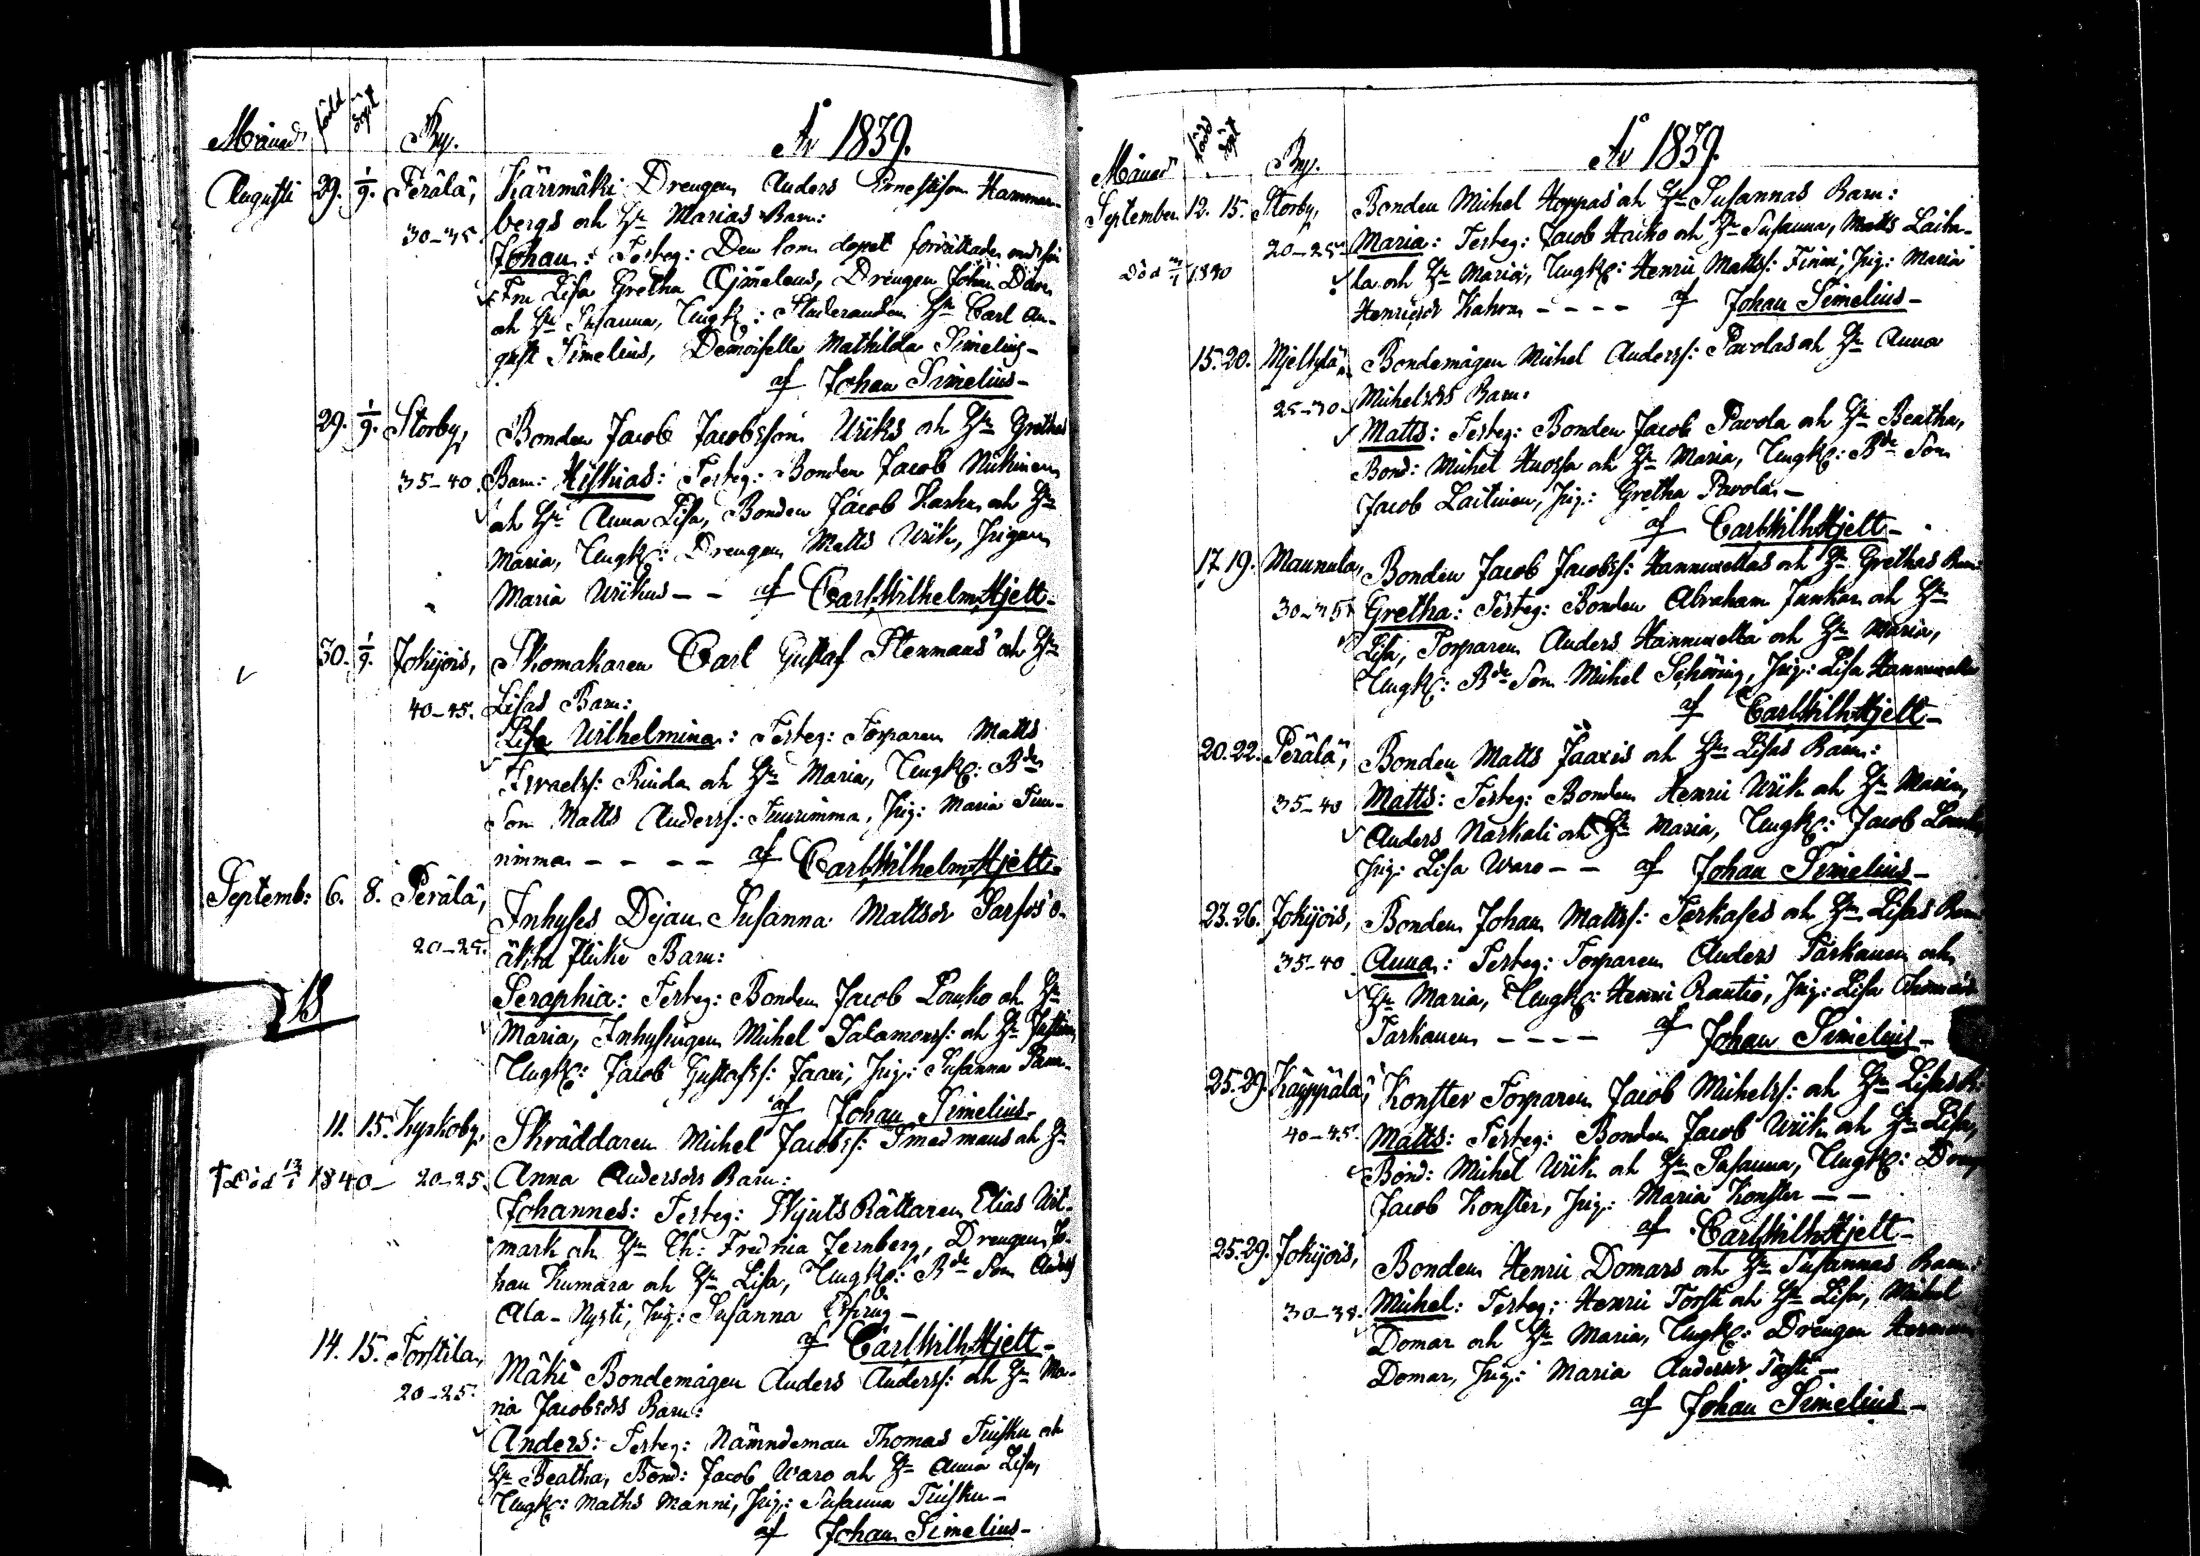 Månad född döpt By. År 1839.
Augusti 29. 1/9. Perälä, Kärrmäki Drengen Anders Ernestsson Hammar-
bergs och Hu Marias Barn:
30-35
Johan: Testeg: Den som dopet förrättade med sin
Fru Lisa Gretha Simelius, Drengen Johan
och Hu Susanna, Ungk: Studeranden Hr Carl Au-
gust Simelius, Demoiselle Mathilda Simelius-
af Johan Simelius-
29. 1/9. Storby, Bonden Jacob Jacobsson Uriks och Hu Grethas
35-40 Barn: Hiskias: Testeg: Bonden Jacob
och Hu Anna Lisa, Bonden Jacob och Hu
Maria, Ungk: Drengen Matts Urik, Pigan
Maria Urikus - - af Carl Wilhelm Hjelt-
30. 1/9. Jokijois, Skomakaren Carl Gustaf Stenmans och Hu
40-45. Lisas Barn:
Lisa Wilhelmina: Testeg: Torparen Matts
Israelss: Rinda och Hu Maria, Ungk: Bde
Son Matts Anderss: Pig: Maria
- - - - af Carl Wilhelm Hjelt-
Septemb: 6. 8. Perälä, Inhyses Dejan Susanna Mattsdr o-
20-25. äkta Barn:
Seraphia: Testeg: Bonden Jacob Louko och Hu
Maria, Inhysingen Michel Salamonss: och Hu
Ungk: Jacob Gustafss: Jaaxi, Pig: Susanna
18
af Johan Simelius-
11. 15. Kyrkoby, Skräddaren Michel Jacobss: Smedmans och Hu
† Död 13/1 1840- 20-25. Anna Andersdrs Barn:
Johannes: Testeg: Skjuts Rättaren Elias
mark och Hu Ch: Fredrica Jernberg, Drengen Jo-
han Kumara och Hu Lisa, Ungk: Bde Son Anders
Ala-Nysti, Pig: Susanna -
af Carl Wilh Hjelt-
14. 15. Torstila, Mäki Bondemågen Anders Anderss: och Hu Ma-
20-25. ria Jacobsdrs Barn:
Anders: Testeg: Nämndeman Thomas och
Hu Beatha, Bond: Jacob Waro och Hu Anna Lisa,
Ungk: Maths Manni, Pig: Susanna -
af Johan Simelius-
Månad född döpt By. År 1839.
September 12. 15. Storby, Bonden Michel Hoppas och Hu Susannas Barn:
20-25 Maria: Testeg: Jacob Haiko och Hu Susanna, Matts Laita-
Död 1840 la och Hu Maria, Ungk: Henric Matts: Finni, Pig: Maria
Henricsdr - - - - af Johan Simelius-
15. 20. Bondemågen Michel Anderss: Pavolas och Hu Anna
25-30 Michelsdrs Barn:
Matts: Testeg: Bonden Jacob Pavola och Hu Beatha,
Bond: Michel och Hu Maria, Ungk: Bde Son
Jacob Laitinen, Pig: Gretha Pavola-
af Carl Wilh Hjelt-
17. 19. Maunula, Bonden Jacob Jacobss: Hannuxelas och Hu Grethas Barn:
30-35 Gretha: Testeg: Bonden Abraham Junkar och Hu
Lisa, Torparen Anders Hannuxela och Hu Maria,
Ungk: Bde Son Michel Pig: Lisa Hannuxela
af Carl Wilh Hjelt-
20. 22. Perälä, Bonden Matts Jaaxis och Hu Lisas Barn:
35-40 Matts: Testeg: Bonden Henric Urik och Hu Maria,
Anders Narkali och Hu Maria, Ungk: Jacob
Pig: Lisa Waro - - af Johan Simelius-
23. 26. Jokijois, Bonden Johan Mattss: och Hu Lisas Barn
35-40 Anna: Testeg: Torparen Anders Tarkanen och
Hu Maria, Ungk: Henric Rautio, Pig: Lisa
Tarkanen - - - - af Johan Simelius-
25. 29. Käyppälä, Konster Torparen Jacob Michelss: och Hu Lisas
40-45. Matts: Testeg: Bonden Jacob Urik och Hu Lisa,
Bond: Michel Urik och Hu Susanna, Ungk:
Jacob Konster, Pig: Maria Konster - -
af Carl Wilh Hjelt-
25. 29. Jokijois, Bonden Henric Domars och Hu Susannas Barn:
30-35. Michel: Testeg: Henric Torsti och Hu Lisa, Michel
Domar och Hu Maria, Ungk: Drengen Herman
Domar, Pig: Maria Andersdr -
af Johan Simelius-